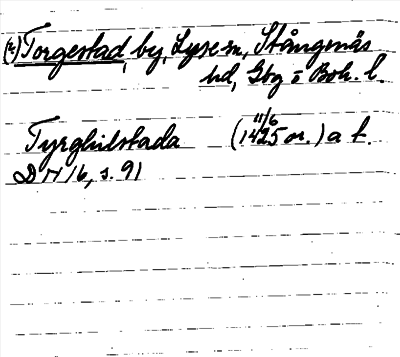 (2) Torgestad, by, Lyse sn, Stångenäs
hd, Gbg o Boh. l.
11/6
Tyrghilstada (1425 or.) a f.
DN 16, s. 91